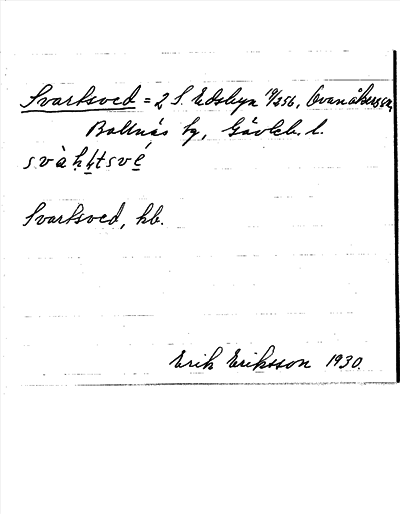 Svartsved = 2 S. Edsbyn 19/256, Ovanåkers sn,
Bollnäs tg, Gävleb. l.
Svartsved, kb.
Erik Eriksson 1930.